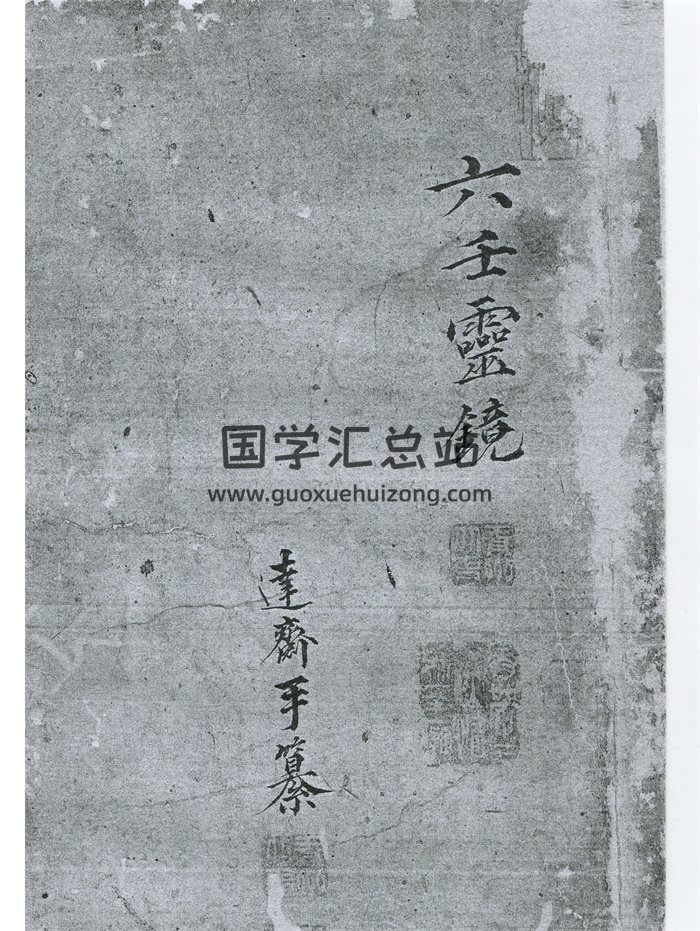 六壬靈鏡
国学汇总站
www.guoxuehuizong.com
達齋手纂